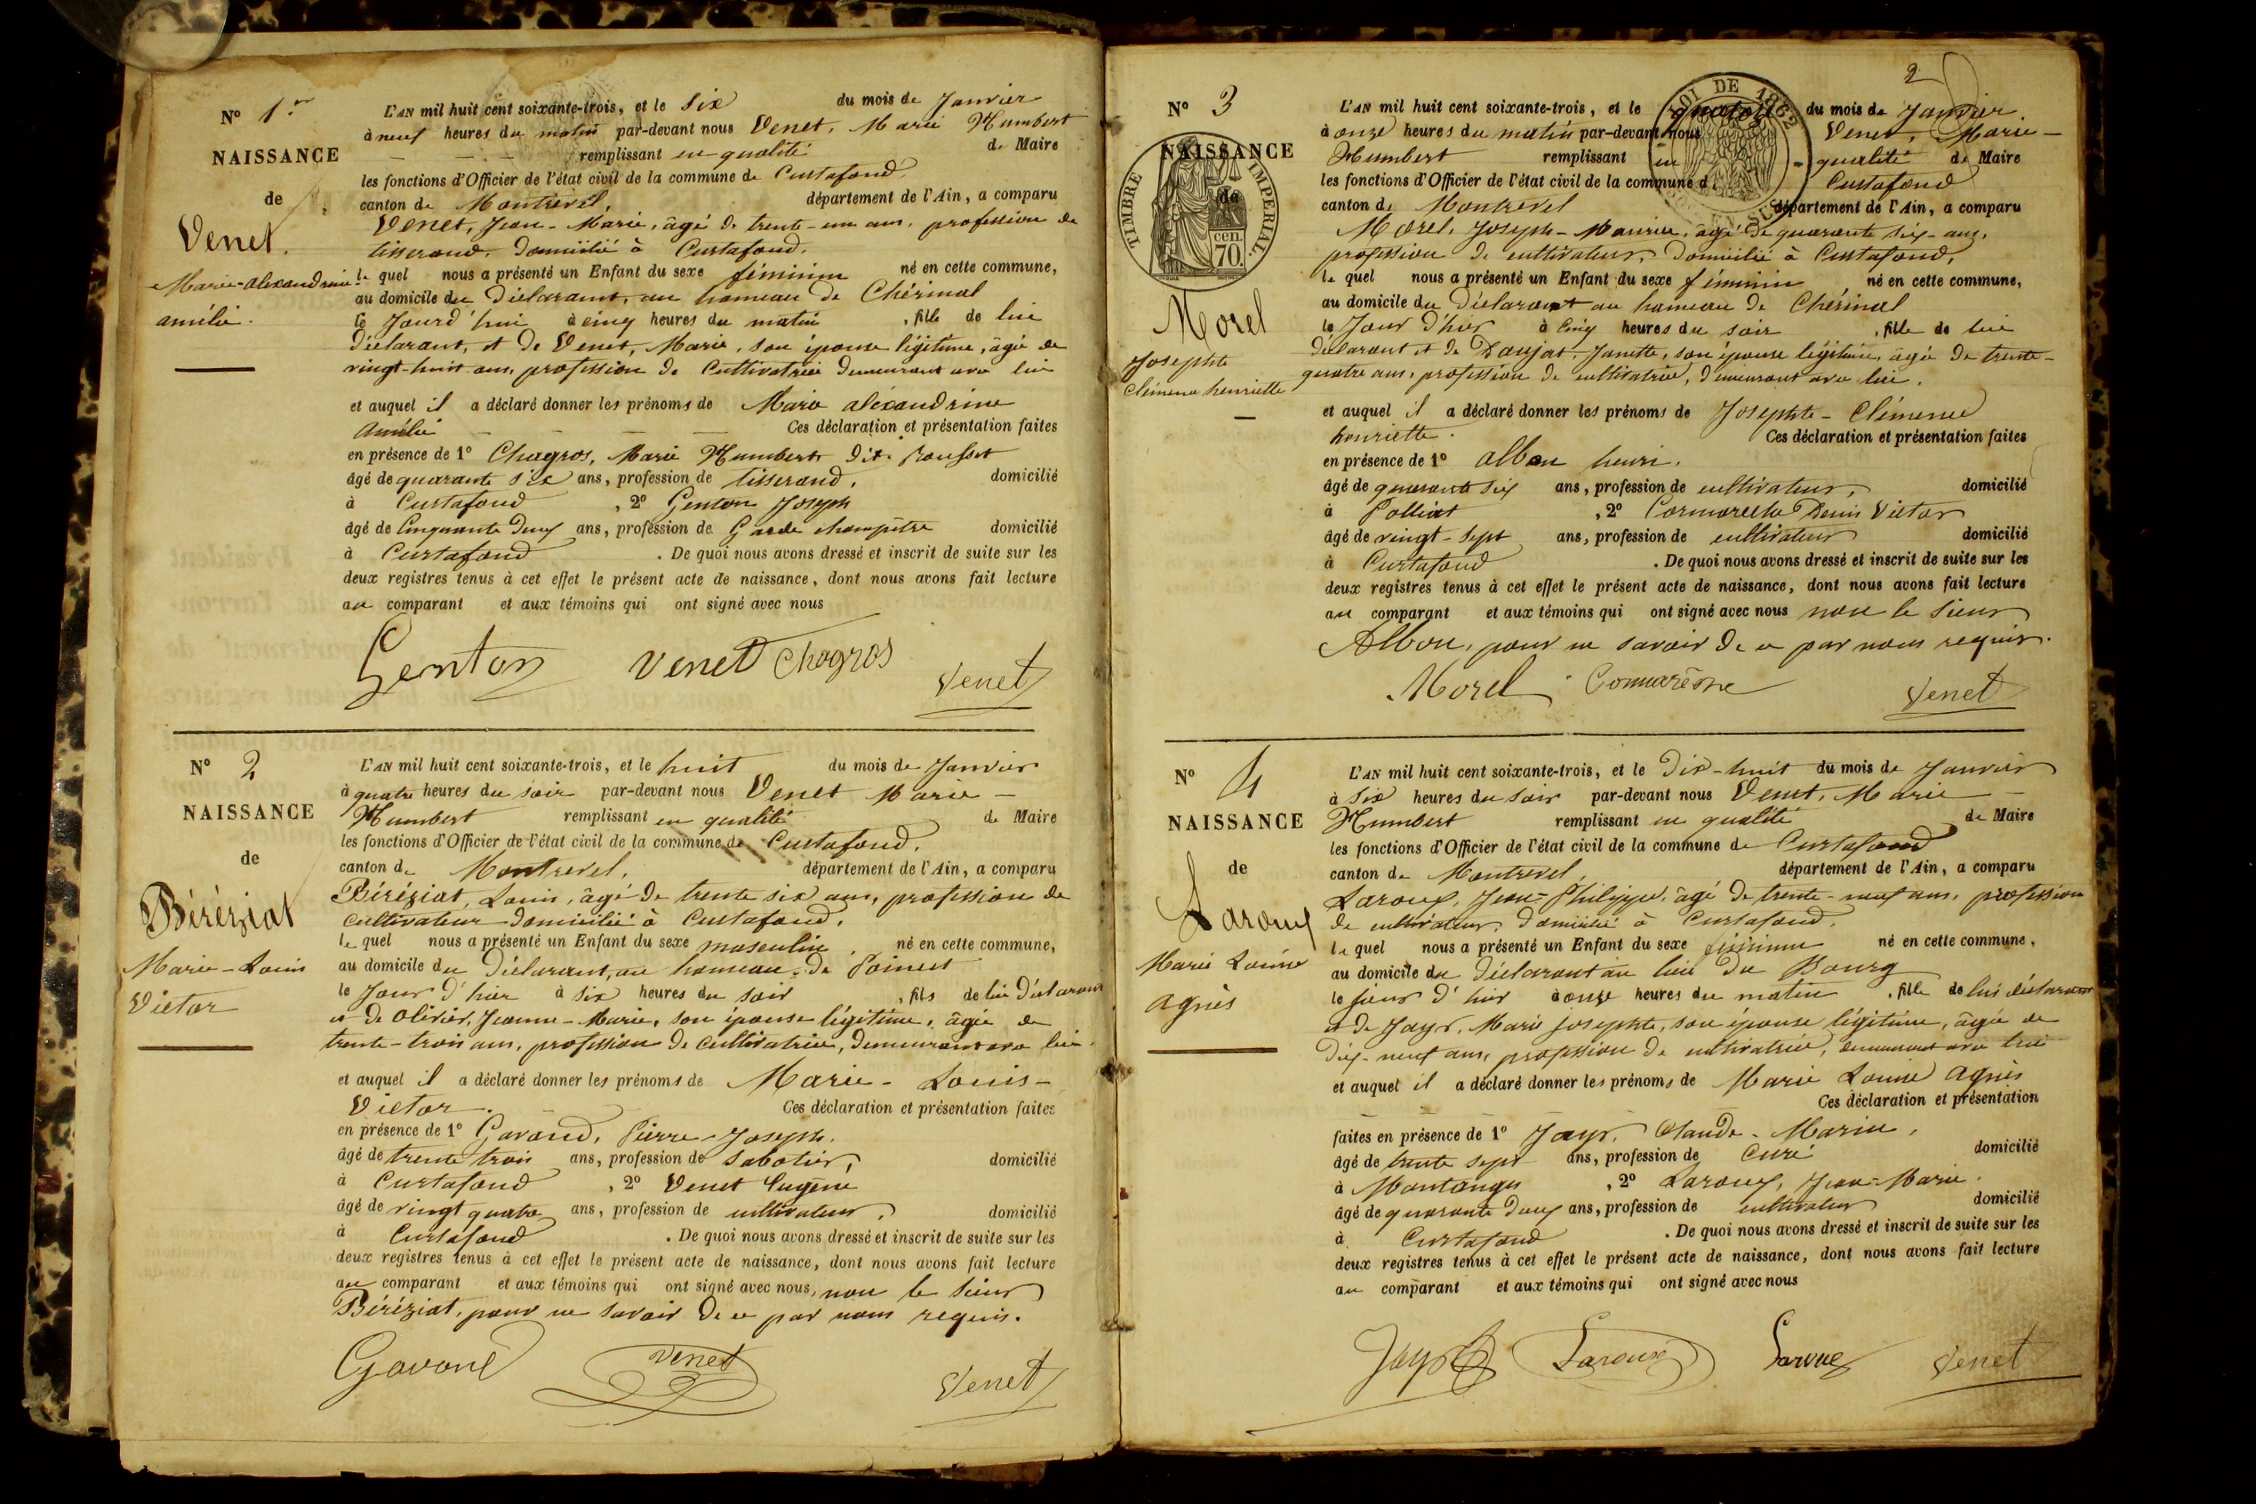 N° 1er
NAISSANCE
de
Venet.
Marie-alexandrine
amélie.
L'AN mil huit cent soixante-trois, et le six du mois de Janvier
à neuf heures du matin par-devant nous Venet, Marie Humbert
remplissant en qualité de Maire
les fonctions d'Officier de l'état civil de la commune de Curtafond
canton de Montrevel, département de l'Ain, a comparu
Venet, Jean-Marie, âgé de trente-un ans, profession de
tisserand, domicilié à Curtafond.
le quel nous a présenté un Enfant du sexe féminin né en cette commune,
au domicile du déclarant, au hameau de Chérinal
le Jourd'hui à cinq heures du matin, fille de lui
déclarant, et de Venet, Marie, son épouse légitime, âgée de
vingt-huit ans, profession de Cultivatrice demeurant avec lui
et auquel il a déclaré donner les prénoms de Marie alexandrine
Amélie Ces déclaration et présentation faites
en présence de 1° Chagros, Marie Humbert dit Rousset
âgé de quarante six ans, profession de tisserand, domicilié
à Curtafond, 2° Genton Joseph
âgé de Cinquante deux ans, profession de Garde champêtre domicilié
à Curtafond. De quoi nous avons dressé et inscrit de suite sur les
deux registres tenus à cet effet le présent acte de naissance, dont nous avons fait lecture
au comparant et aux témoins qui ont signé avec nous
Genton Venet Chagros Venet
N° 2
NAISSANCE
de
Béréziat
Marie-Louis
Victor
L'AN mil huit cent soixante-trois, et le huit du mois de Janvier
à quatre heures du soir par-devant nous Venet Marie-
Humbert remplissant en qualité de Maire
les fonctions d'Officier de l'état civil de la commune de Curtafond,
canton de Montrevel, département de l'Ain, a comparu
Béréziat, Louis, âgé de trente six ans, profession de
cultivateur domicilié à Curtafond,
le quel nous a présenté un Enfant du sexe masculin né en cette commune,
au domicile du déclarant, au hameau de
le Jour d'hier à six heures du soir, fils de lui déclarant
et de Olivier, Jeanne-Marie, son épouse légitime, âgée de
trente-trois ans, profession de cultivatrice, demeurant avec lui.
et auquel il a déclaré donner les prénoms de Marie-Louis-
Victor. Ces déclaration et présentation faites
en présence de 1° Gavand, Pierre-Joseph.
âgé de trente trois ans, profession de sabotier, domicilié
à Curtafond, 2° Venet Eugène
âgé de vingt quatre ans, profession de cultivateur, domicilié
à Curtafond. De quoi nous avons dressé et inscrit de suite sur les
deux registres tenus à cet effet le présent acte de naissance, dont nous avons fait lecture
au comparant et aux témoins qui ont signé avec nous, non le sieur
Béréziat, pour ne savoir de ce par nous requis.
Venet Venet
2
LOI DE 1862
TIMBRE IMPERIAL
70 cen.
N° 3
NAISSANCE
de
Morel
Josephte
Clémence henriette
L'AN mil huit cent soixante-trois, et le quatorze du mois de Janvier
à onze heures du matin par-devant nous Venet, Marie-
Humbert remplissant en qualité de Maire
les fonctions d'Officier de l'état civil de la commune de Curtafond
canton de Montrevel département de l'Ain, a comparu
Morel, Joseph-Maurice, âgé de quarante six ans,
profession de cultivateur, domicilié à Curtafond,
le quel nous a présenté un Enfant du sexe féminin né en cette commune,
au domicile du déclarant au hameau de Chérinal
le Jour d'hier à cinq heures du soir, fille de lui
déclarant et de Danjat, Janette, son épouse légitime, âgée de trente-
quatre ans, profession de cultivatrice, demeurant avec lui.
et auquel il a déclaré donner les prénoms de Josephte-Clémence
henriette. Ces déclaration et présentation faites
en présence de 1° alban henri.
âgé de quarante six ans, profession de cultivateur, domicilié
à Polliat, 2° Denis Victor
âgé de vingt-sept ans, profession de cultivateur domicilié
à Curtafond. De quoi nous avons dressé et inscrit de suite sur les
deux registres tenus à cet effet le présent acte de naissance, dont nous avons fait lecture
au comparant et aux témoins qui ont signé avec nous non le sieur
Albon, pour ne savoir de ce par nous requis.
Morel Venet
N° 4
NAISSANCE
de
Laroux
Marie Louise
Agnès
L'AN mil huit cent soixante-trois, et le Dix-huit du mois de Janvier
à six heures du soir par-devant nous Venet, Marie
Humbert remplissant en qualité de Maire
les fonctions d'Officier de l'état civil de la commune de Curtafond
canton de Montrevel, département de l'Ain, a comparu
Laroux, Jean-Philippe, âgé de trente-neuf ans, profession
de cultivateur, domicilié à Curtafond.
le quel nous a présenté un Enfant du sexe féminin né en cette commune,
au domicile du déclarant au lieu du Bourg
le jour d'hier à onze heures du matin, fille de lui déclarant
et de Jayr, Marie Josephte, son épouse légitime, âgée de
dix-neuf ans, profession de cultivatrice, demeurant avec lui
et auquel il a déclaré donner les prénoms de Marie Louise Agnès
Ces déclaration et présentation
faites en présence de 1° Jayr, Claude-Marie,
âgé de trente sept ans, profession de Curé domicilié
à Montanges, 2° Laroux, Jean-Marie.
âgé de quarante deux ans, profession de cultivateur domicilié
à Curtafond. De quoi nous avons dressé et inscrit de suite sur les
deux registres tenus à cet effet le présent acte de naissance, dont nous avons fait lecture
au comparant et aux témoins qui ont signé avec nous
Jayr Laroux Laroux Venet